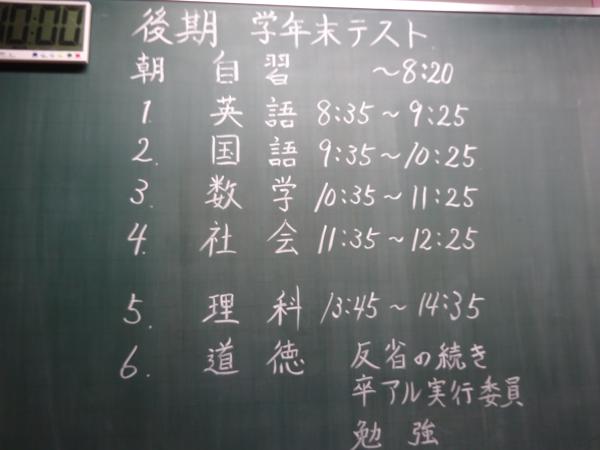 後期 学年末テスト
朝 自習 ~8:20
1. 英語 8:35~9:25
2. 国語 9:35~10:25
3. 数学 10:35~11:25
4. 社会 11:35~12:25
5. 理科 13:45~14:35
6. 道徳 反省の続き
卒アル実行委員
勉強